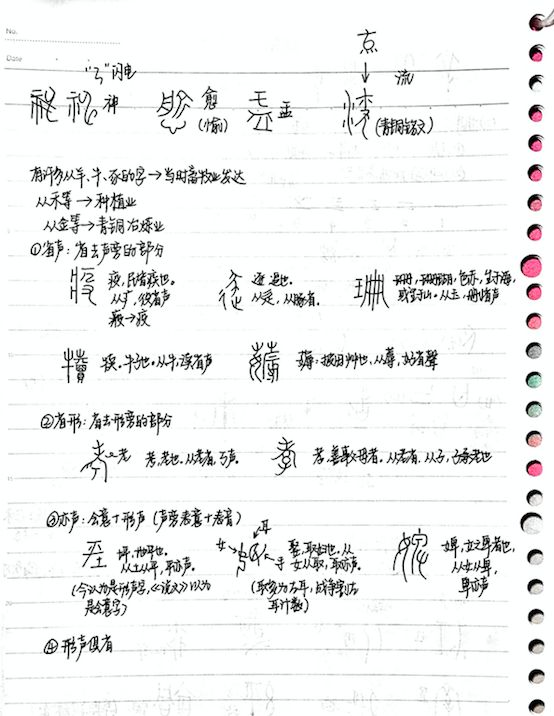 No.
Date
"ろ"闪电
神
愈
(愉)
孟
点
流
(青铜铭文)
有许多从羊、牛、豕的字→当时畜牧业发达
从禾等→种植业
从金等→青铜冶炼业
①省声：省去声旁的部分
疫，民皆疾也。
从疒，役省声
珊，珊瑚，色赤，生于海，
或生于山。从玉，删省声
犊。牛子也。从牛，渎省声
薅：拔田艸也，从蓐，好省声
②省形：省去形旁的部分
老
考，老也。从老省，丂声。
孝，善事父母者。从老省，从子，子承老也
③亦声：会意+形声（声旁表意+表音）
坪，地平也。
从土从平，平亦声。
(今认为是形声字，《说文》认为
是会意字)
女→
耳
娶，取妇也。从
女从取，取亦声。
④形声俱有